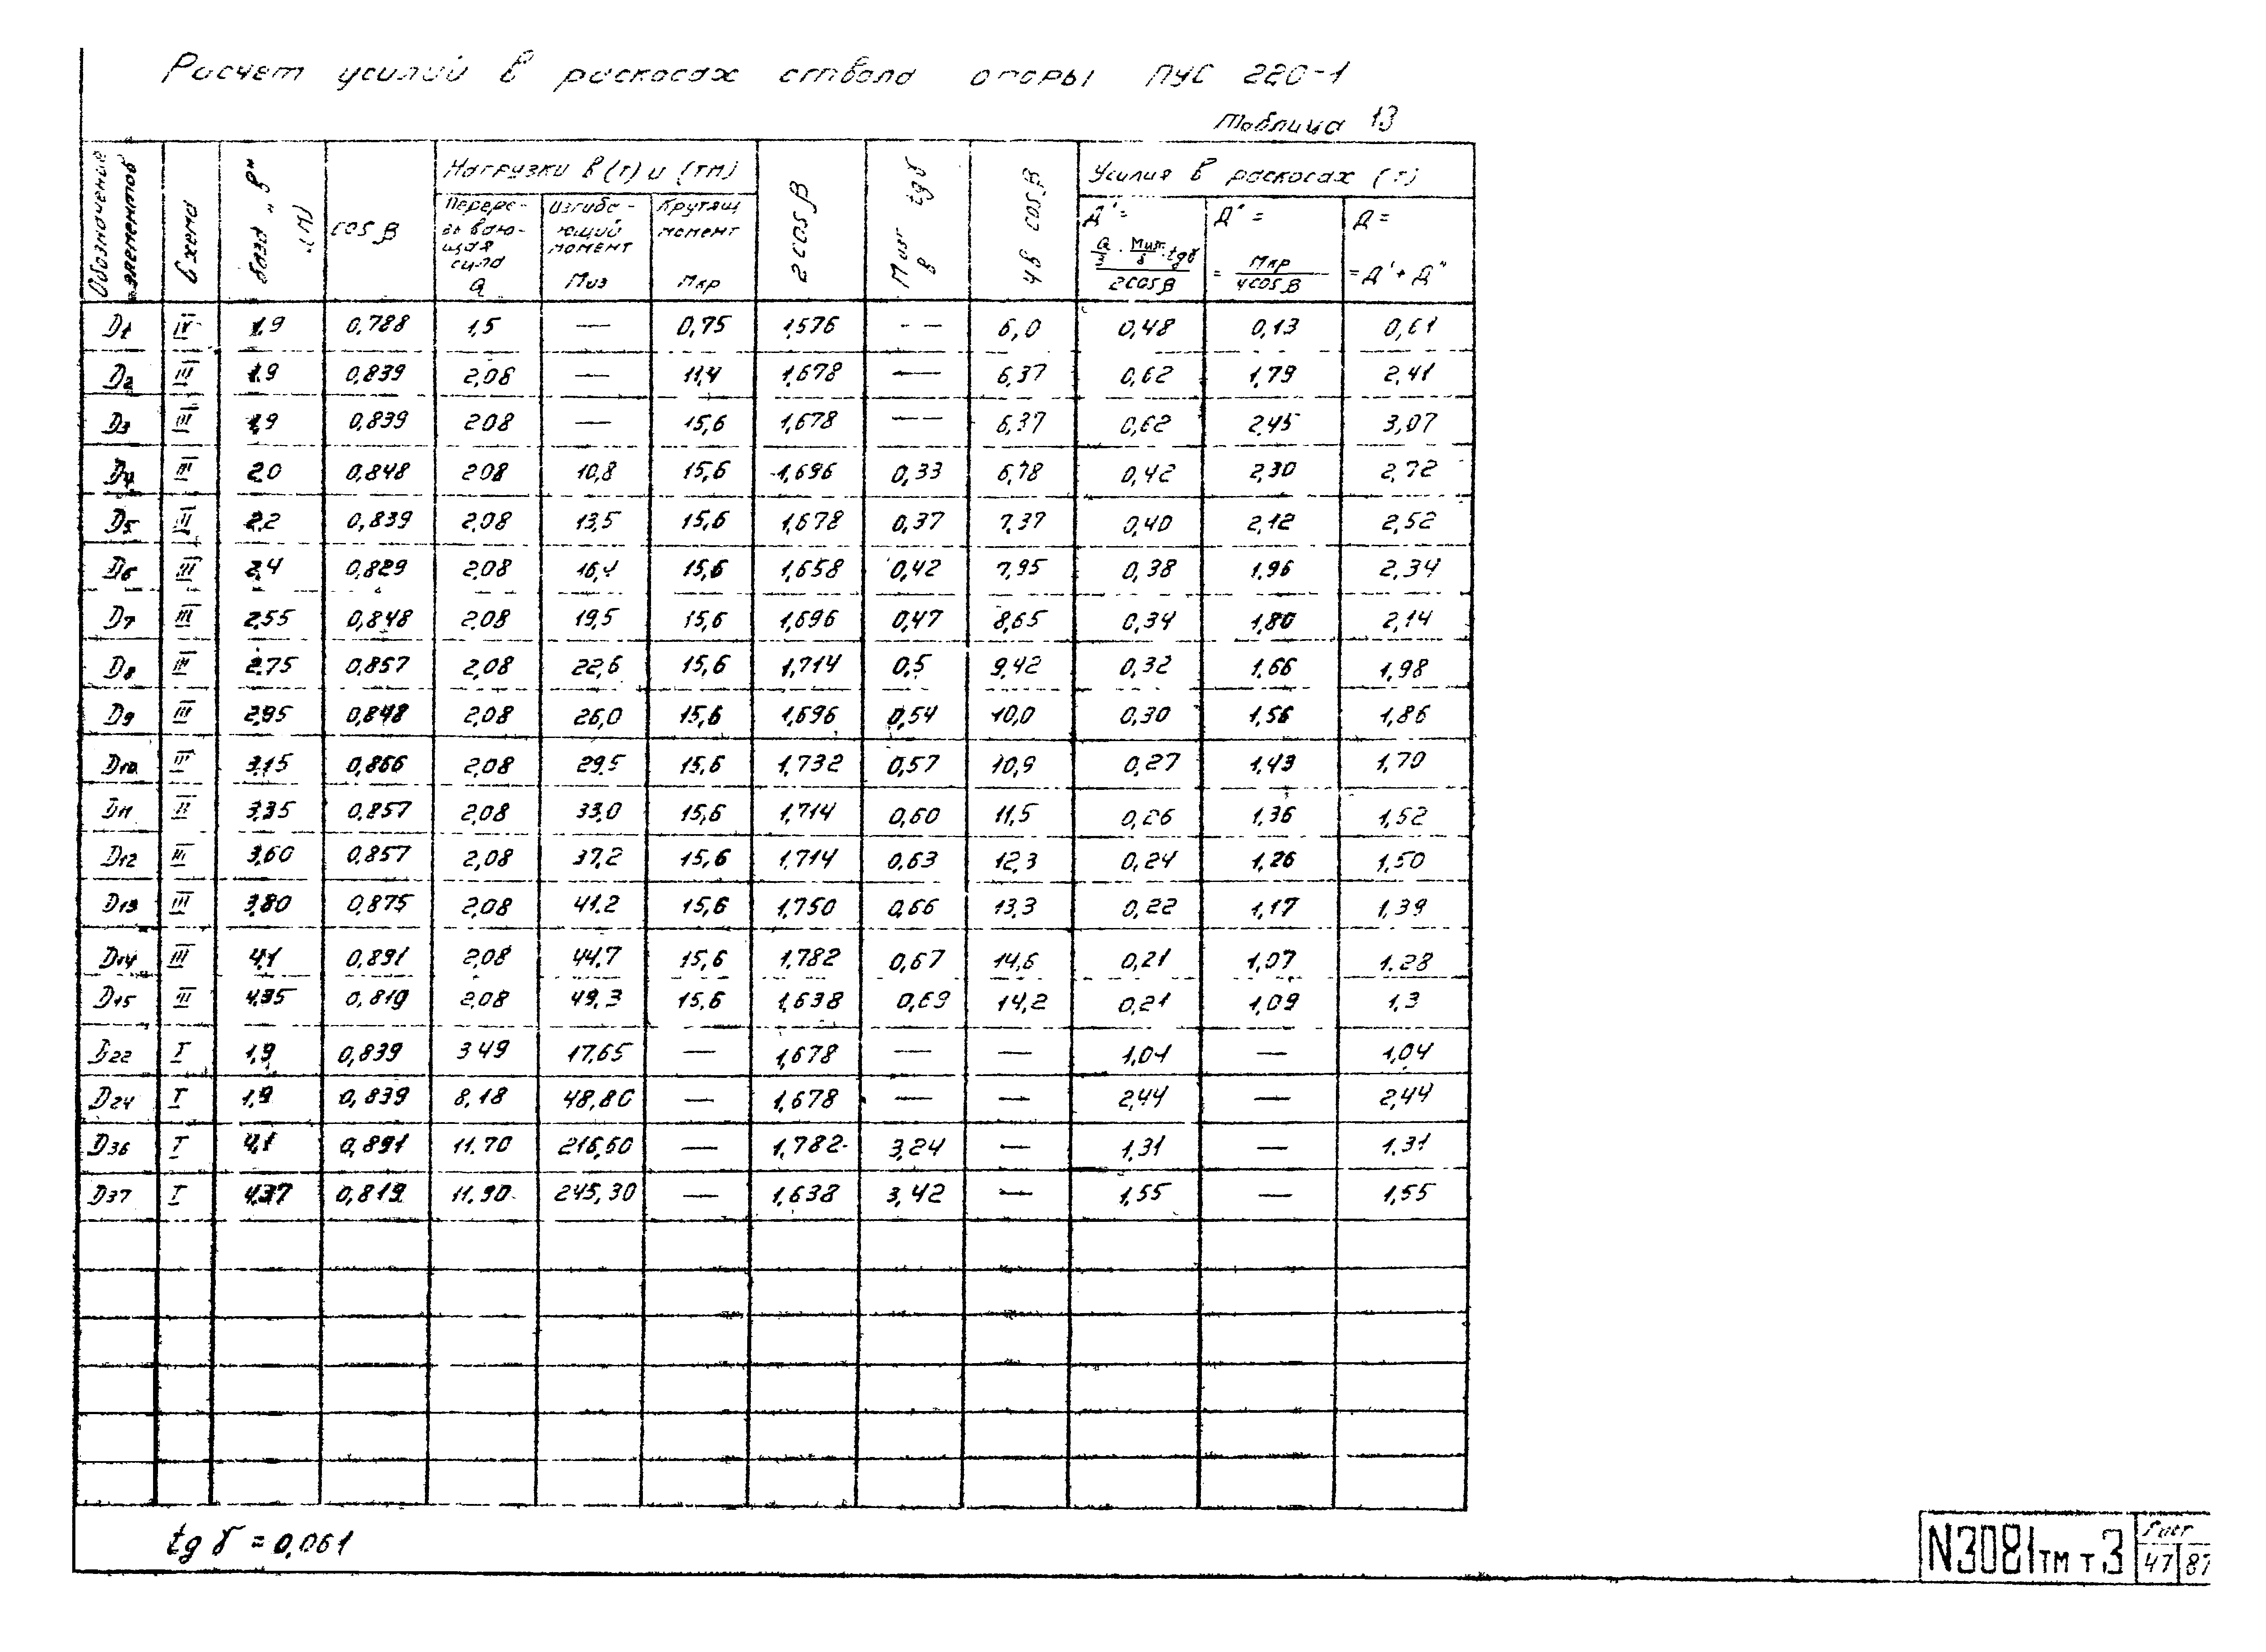 Расчет усилий в раскосах ствола опоры ПУС 220-1
Таблица 13
Обозначение элементов | Схема | База „В" (м) | cos β | Нагрузки в (т) и (тм) | 2 cos β | Миз/в tgγ | 4в cos β | Усилия в раскосах (т)
Перере-зываю-щая сила Q | Изгиба-ющий момент Миз | Крутящ момент Мкр | Д' = | Д" = Мкр/4cosβ | Д = = Д' + Д"
D1 | IV | 1.9 | 0,788 | 1,5 | — | 0,75 | 1,576 | — | 6,0 | 0,48 | 0,13 | 0,61
D2 | III | 1.9 | 0,839 | 2,08 | — | 11,4 | 1,678 | — | 6,37 | 0,62 | 1,79 | 2,41
D3 | III | 1,9 | 0,839 | 2,08 | — | 15,6 | 1,678 | — | 6,37 | 0,62 | 2,45 | 3,07
D4 | III | 2,0 | 0,848 | 2,08 | 10,8 | 15,6 | 1,696 | 0,33 | 6,78 | 0,42 | 2,30 | 2,72
D5 | III | 2,2 | 0,839 | 2,08 | 13,5 | 15,6 | 1,678 | 0,37 | 7,37 | 0,40 | 2,12 | 2,52
D6 | III | 2,4 | 0,829 | 2,08 | 16,4 | 15,6 | 1,658 | 0,42 | 7,95 | 0,38 | 1,96 | 2,34
D7 | III | 2,55 | 0,848 | 2,08 | 19,5 | 15,6 | 1,696 | 0,47 | 8,65 | 0,34 | 1,80 | 2,14
D8 | III | 2,75 | 0,857 | 2,08 | 22,6 | 15,6 | 1,714 | 0,5 | 9,42 | 0,32 | 1,66 | 1,98
D9 | III | 2,95 | 0,848 | 2,08 | 26,0 | 15,6 | 1,696 | 0,54 | 10,0 | 0,30 | 1,56 | 1,86
D10 | III | 3,15 | 0,866 | 2,08 | 29,5 | 15,6 | 1,732 | 0,57 | 10,9 | 0,27 | 1,43 | 1,70
D11 | III | 3,35 | 0,857 | 2,08 | 33,0 | 15,6 | 1,714 | 0,60 | 11,5 | 0,26 | 1,36 | 1,52
D12 | III | 3,60 | 0,857 | 2,08 | 37,2 | 15,6 | 1,714 | 0,63 | 12,3 | 0,24 | 1,26 | 1,50
D13 | III | 3,80 | 0,875 | 2,08 | 41,2 | 15,6 | 1,750 | 0,66 | 13,3 | 0,22 | 1,17 | 1,39
D14 | III | 4,1 | 0,891 | 2,08 | 44,7 | 15,6 | 1,782 | 0,67 | 14,6 | 0,21 | 1,07 | 1,28
D15 | III | 4,35 | 0,819 | 2,08 | 49,3 | 15,6 | 1,638 | 0,69 | 14,2 | 0,21 | 1,09 | 1,3
D22 | I | 1,9 | 0,839 | 3,49 | 17,65 | — | 1,678 | — | — | 1,04 | — | 1,04
D24 | I | 1,9 | 0,839 | 8,18 | 48,80 | — | 1,678 | — | — | 2,44 | — | 2,44
D36 | I | 4,1 | 0,891 | 11,70 | 216,60 | — | 1,782 | 3,24 | — | 1,31 | — | 1,31
D37 | I | 4,37 | 0,819 | 11,90 | 245,30 | — | 1,638 | 3,42 | — | 1,55 | — | 1,55
tg γ = 0,061
N3081тм т3 | Лист
47 | 87